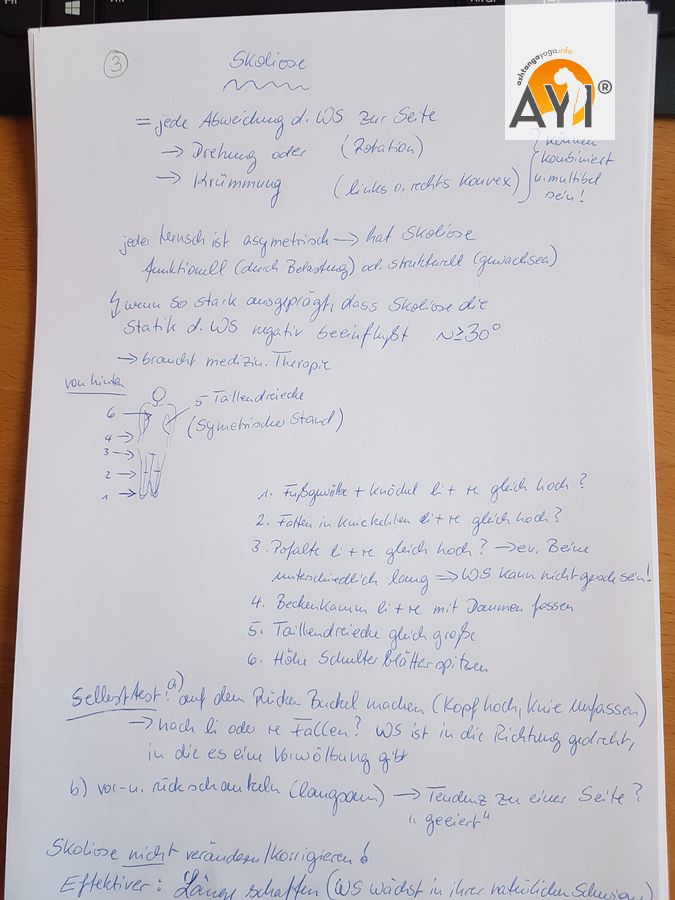 ashtangayoga.info
AYI®
3
Skoliose
= jede Abweichung d. WS zur Seite
→ Drehung oder (Rotation)
→ Krümmung (links o. rechts konvex)
können
kombiniert
u. multibel
sein!
jeder Mensch ist asymetrisch → hat Skoliose
funktionell (durch Belastung) od. strukturell (gewachsen)
wenn so stark ausgeprägt, dass Skoliose die
Statik d. WS negativ beeinflußt ~≥30°
→ braucht medizin. Therapie
von hinten
5 Taillendreiecke
(Symetrischer Stand)
6
4
3
2
1
1. Fußgewölbe + Knöchel li + re gleich hoch?
2. Falten in Kniekehlen li + re gleich hoch?
3. Pofalte li + re gleich hoch? → ev. Beine
unterschiedlich lang ⇒ WS kann nicht gerade sein!
4. Beckenkamm li + re mit Daumen fassen
5. Taillendreiecke gleich große
6. Höhe Schulterblätterspitzen
Selbsttest: a) auf dem Rücken Buckel machen (Kopf hoch, Knie umfassen)
→ nach li oder re Fallen? WS ist in die Richtung gedreht,
in die es eine Vorwölbung gibt
b) vor- u. rückschaukeln (langsam) → Tendenz zu einer Seite?
"geeiert"
Skoliose nicht verändern/korrigieren!
Effektiver: Länge schaffen (WS wächst in ihrer natürlichen